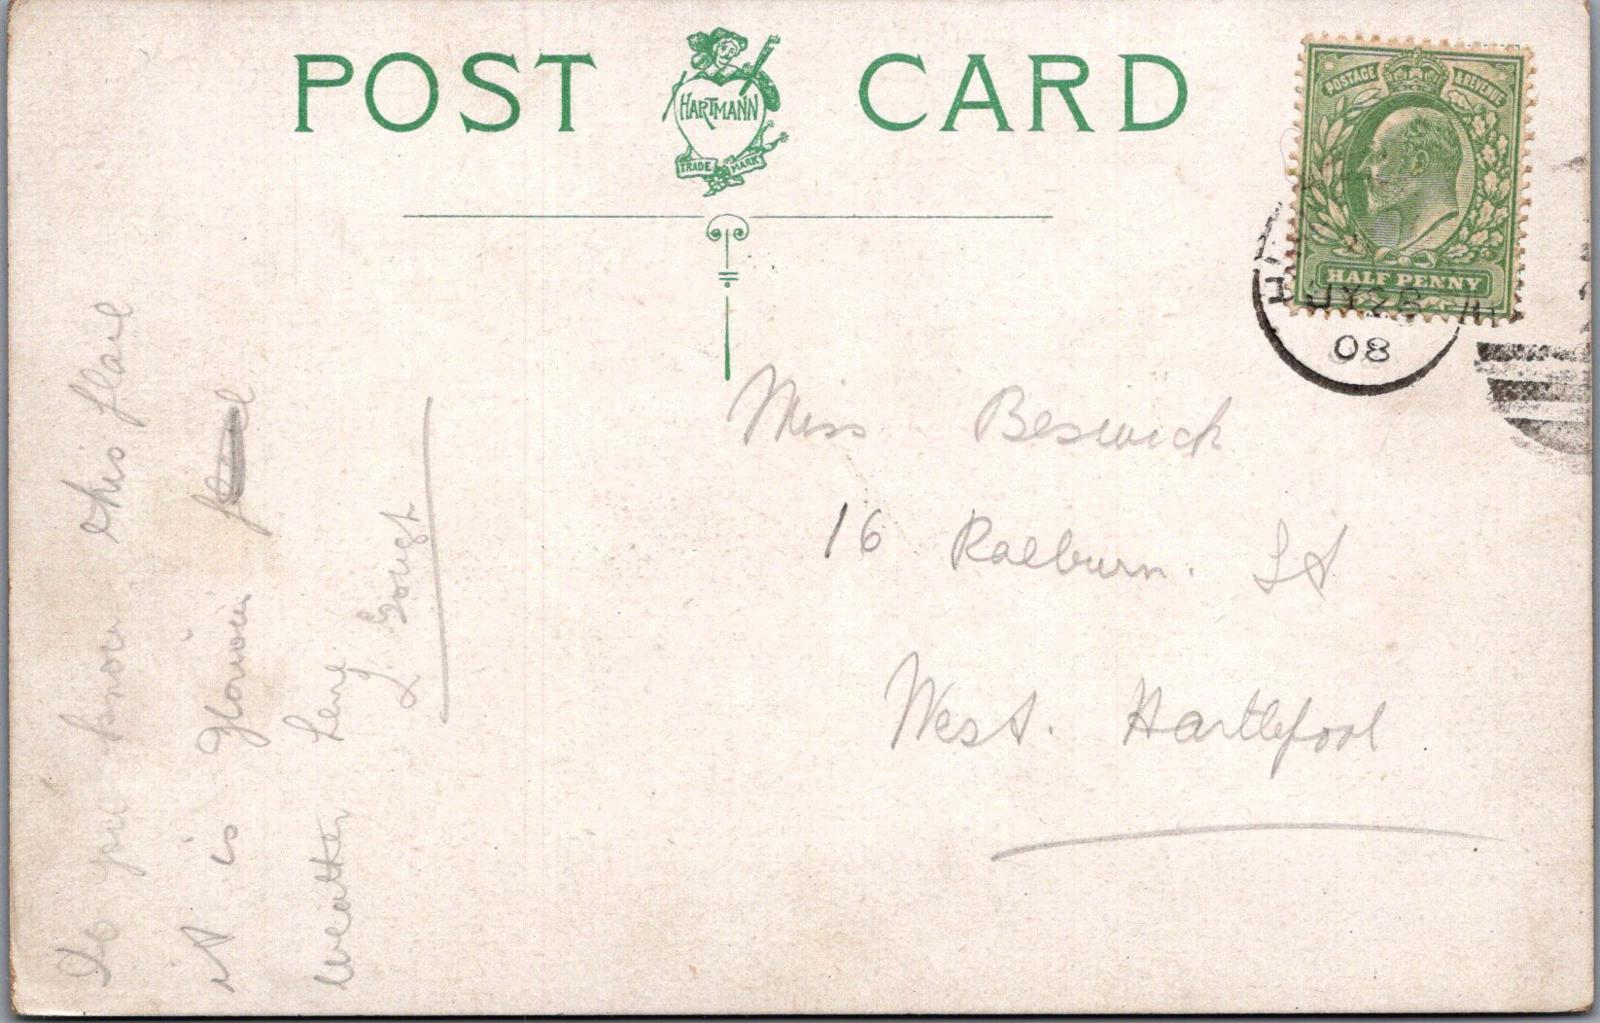 POST CARD
HARTMANN
TRADE MARK
POSTAGE & REVENUE
HALF PENNY
JY 28
08
Miss Beswick
16 Raeburn. St
West. Hartlepool
Do you know this place
it is Glorious
weather here
L Gough